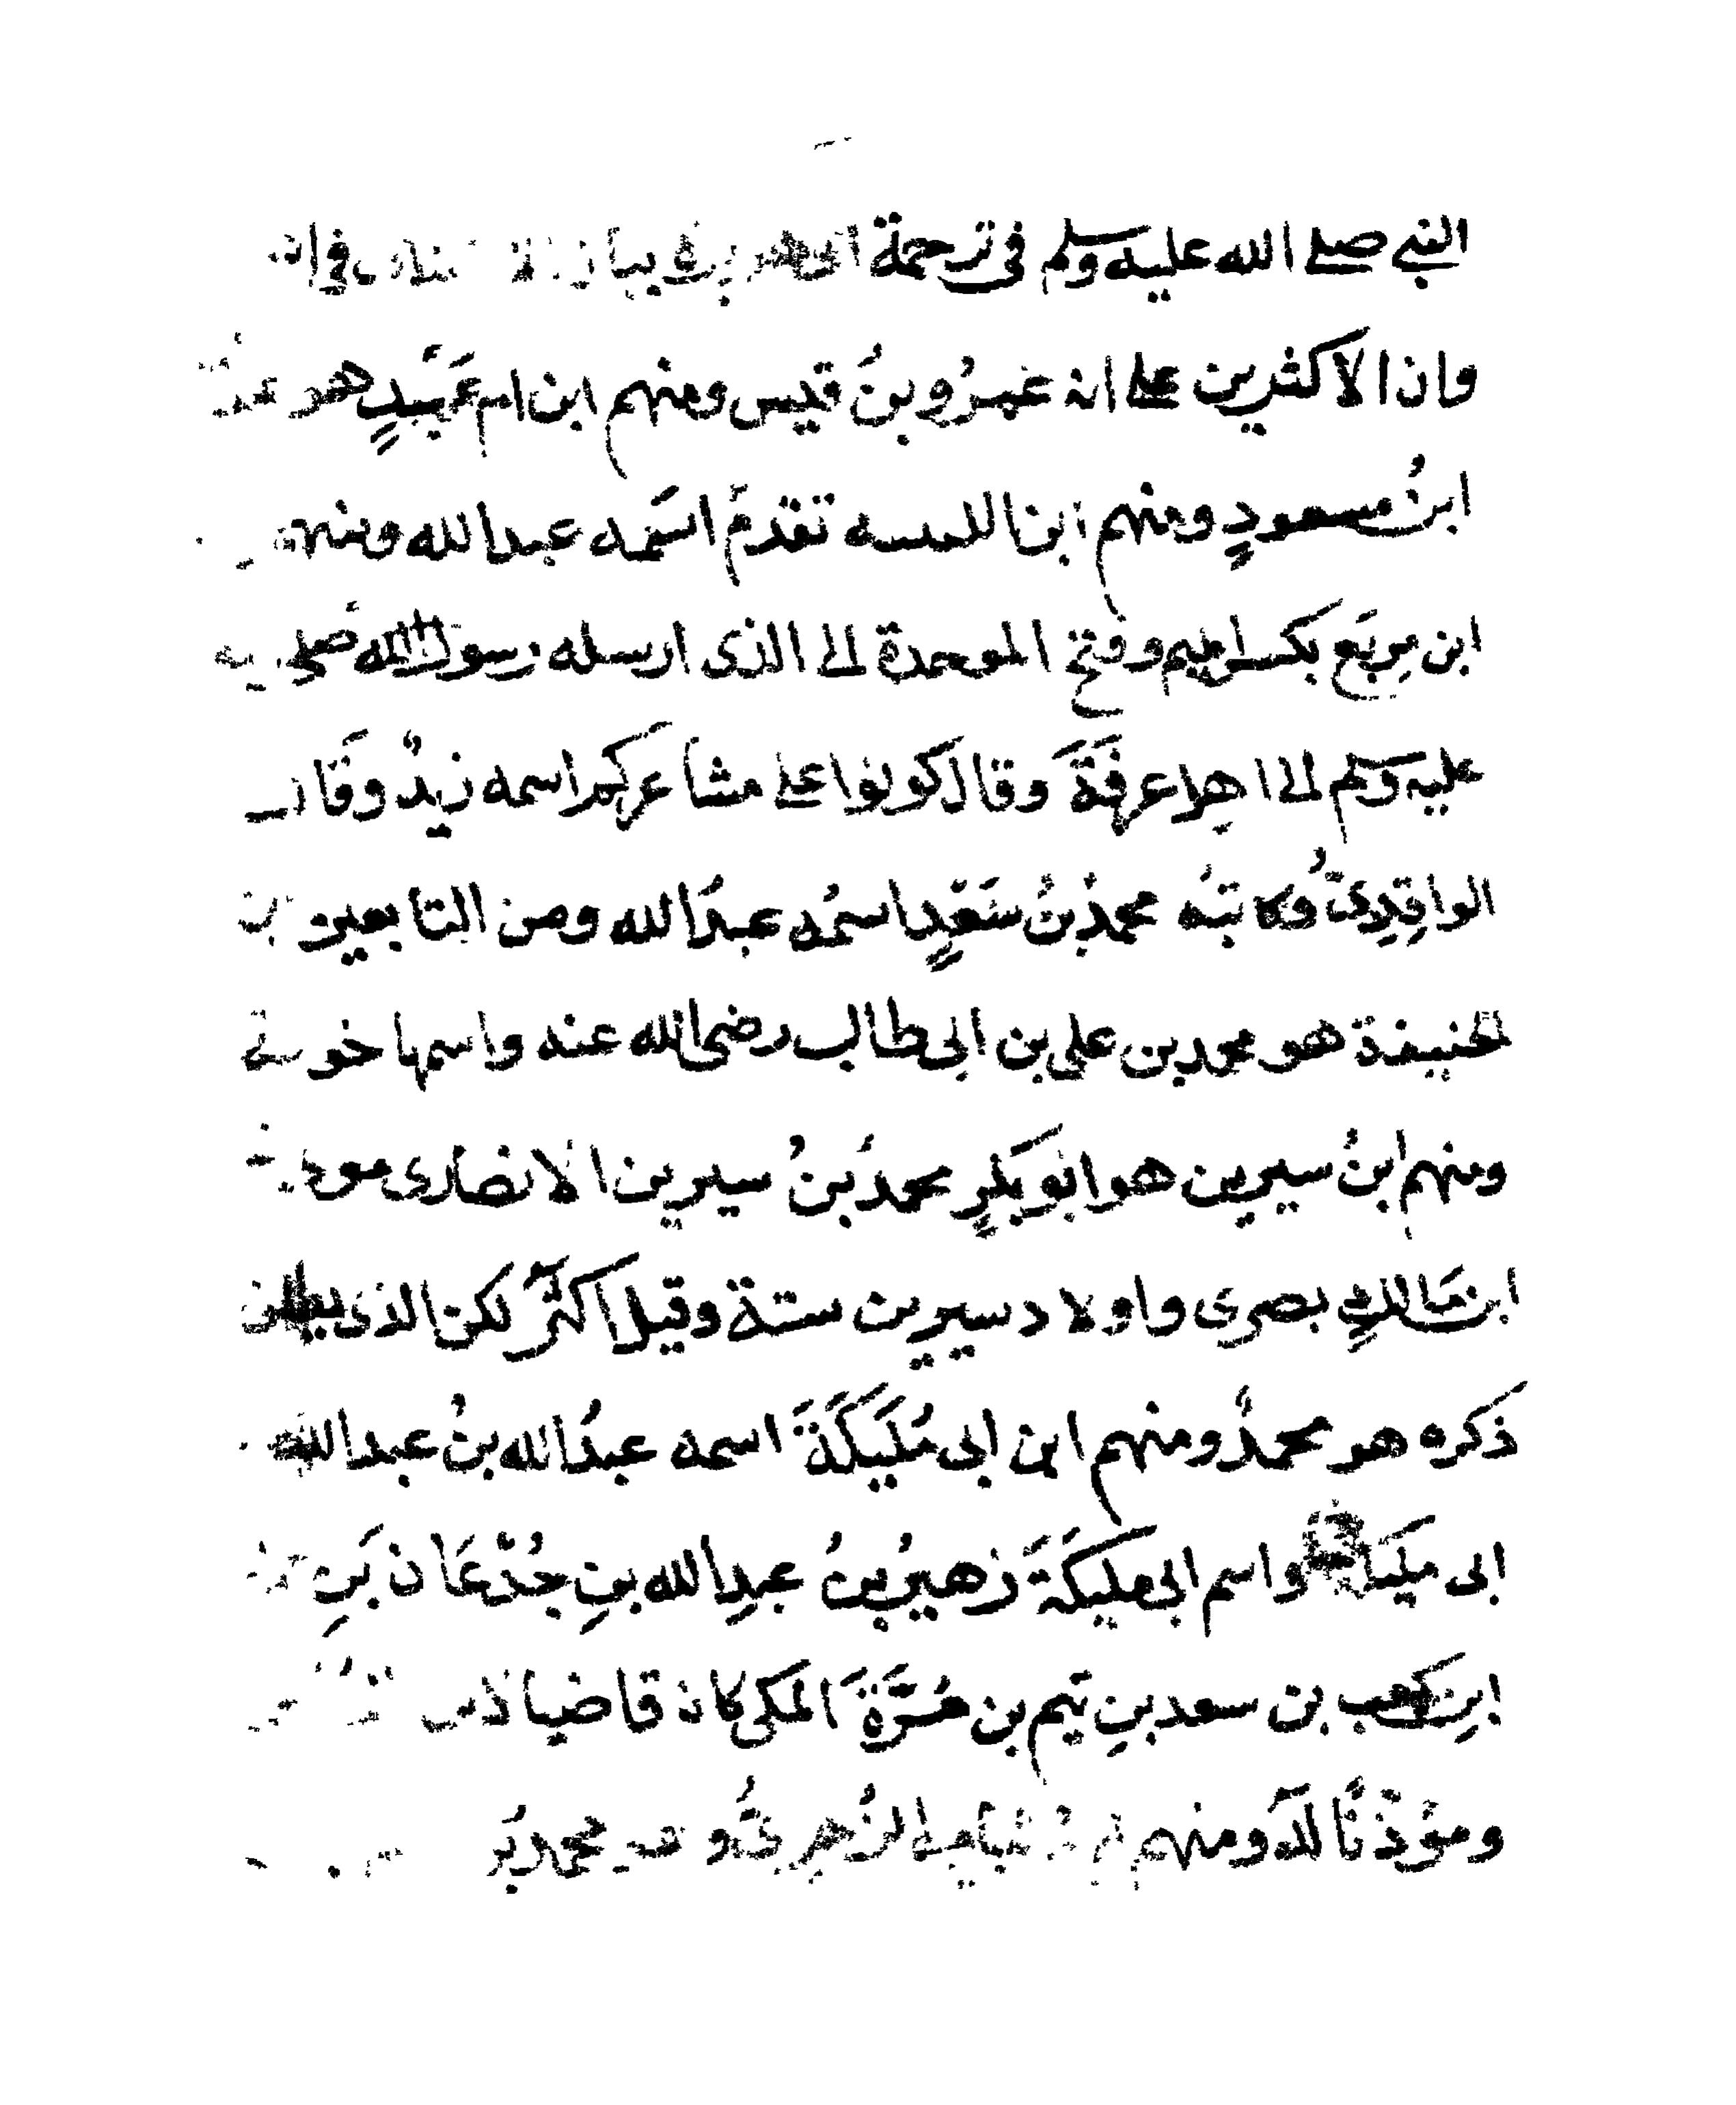 النبي صلى الله عليه وسلم في ترجمة ابي هريرة بيان في
وان الاكثرين على انه عَمرُو بنُ قيس ومنهم ابن ام عَبْدٍ هو
ابنُ مسعودٍ ومنهم ابن اللتبية تقدمَ اسمه عبد الله ومنهم
ابن مِربَع بكسر الميم وفتح الموحدة الى الذى ارسله رسول الله صلى
عليه وسلم الى اهل عرفَةَ وقال كونوا على مشاعركم اسمه زيدٌ وقال
الواقِدِىُّ وكاتبُه محمدُ بنُ سَعْدٍ اسمُه عبدُ الله ومن التابعين ابن
لحنيفة هو محمد بن على بن ابى طالب رضى الله عنه واسمها خولة
ومنهم ابنُ سيرين هو ابو بَكرٍ محمدُ بنُ سيرين الانصارى مولى
ابن مَالكٍ بصرى واولاد سيرين ستة وقيل اكثَر لكن الذى
ذكره هو محمدٌ ومنهم ابن ابى مُلَيكَةَ اسمه عبدُ الله بنُ عبد الله
ابى مليكة واسم ابى مليكَةَ زهيرُ بنُ عبدِ الله بنِ جُدْعَان بَنِ
ابنِ كعب بن سعد بنِ تيم بن مُرَّةَ المكى كان قاضيا
ومؤذنًا له ومنهم الزُهرِىُّ وهو محمد بن